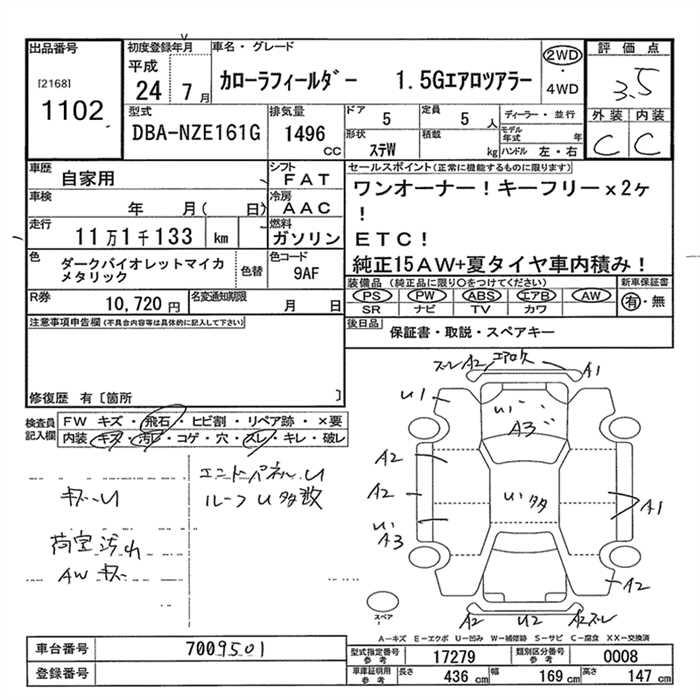 出品番号
[2168]
1102
初度登録年月
平成
24 7月
車名・グレード
カローラフィールダー 1.5Gエアロツアラー
2WD
・
4WD
評価点
3.5
外装 内装
C C
型式
DBA-NZE161G
排気量
1496
CC
ドア
5
定員
5 人
形状
ステW
積載
kg
ディーラー・並行
モデル年式 年
ハンドル 左・右
車歴
自家用
シフト
FAT
車検
年 月( 日)
冷房
AAC
走行
11万1千133 km
燃料
ガソリン
色
ダークバイオレットマイカ
メタリック
色替
色コード
9AF
R券
10,720 円
名変通知期限
月 日
セールスポイント(正常に機能するものに限ります)
ワンオーナー!キーフリーx2ヶ
!
ETC!
純正15AW+夏タイヤ車内積み!
装備品 (純正品に限り○をつけてください)
PS PW ABS エアB AW
SR ナビ TV カワ
新車保証書
有・無
後日品
保証書・取説・スペアキー
注意事項申告欄(不具合内容等は具体的に記入して下さい)
修復歴 有〔箇所 〕
検査員
記入欄
FW キズ・飛石・ヒビ割・リペア跡・×要
内装 キズ・汚レ・コゲ・穴・スレ・キレ・破レ
キズ・U
荷室汚れ
AWキズ
エンドパネルU
ルーフU多数
ズレA2 エアロ欠 A1
U1
U1
A3
A2
A2
U1
A3
U1多
A1
A2
スペア
A2 U2 A2ズレ
A-キズ E-エクボ U-凹み W-補修跡 S-サビ C-腐食 XX-交換済
車台番号
7009501
登録番号
型式指定番号
参考
17279
類別区分番号
参考
0008
車庫証明用
参考
長さ 436 cm
幅 169 cm
高さ 147 cm